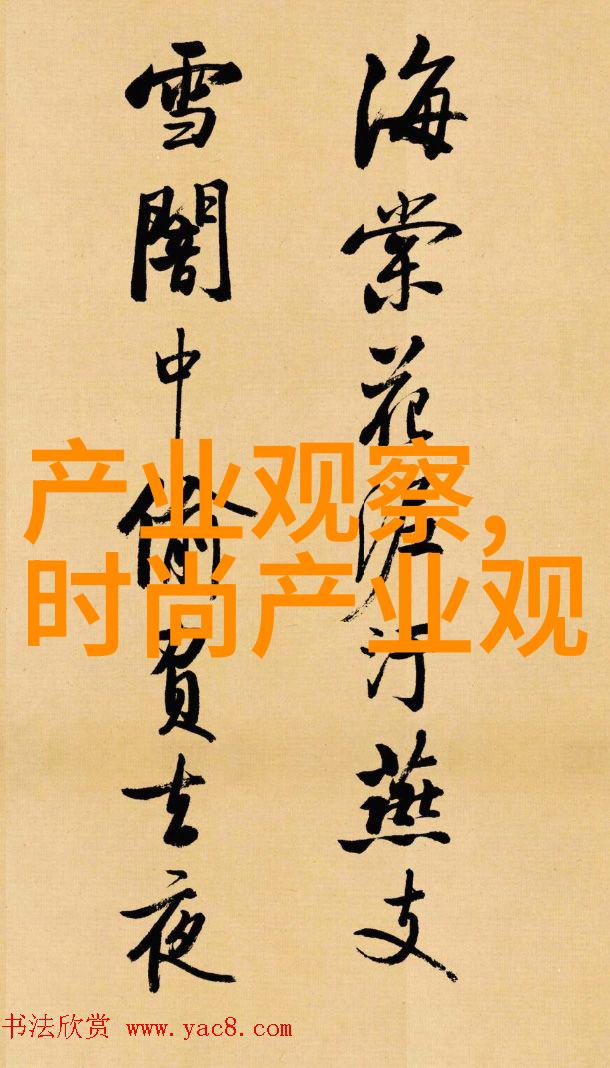 海棠花泥汙燕支
雪闇中偷負去夜
产业观察,
时尚产业观
书法欣赏 www.yac8.com